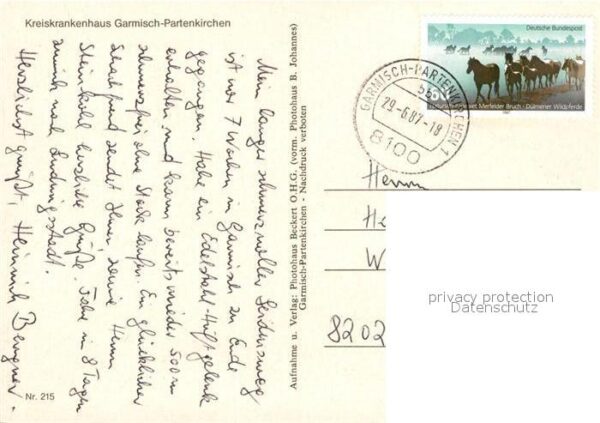 Kreiskrankenhaus Garmisch-Partenkirchen
Mein langer schmerzvoller Leidensweg
ist vor 7 Wochen in Garmisch zu Ende
gegangen. Habe ein Edelstahl-Hüftgelenk
erhalten und kann bereits wieder 500 m
schmerzfrei ohne Stock laufen. Ein glücklicher
Schachfreund sendet Ihnen sowie Herrn
herzliche Grüße. Fahre in 8 Tagen
zurück nach Ludwigsstadt.
Herzlichst grüßt, Heinrich
Nr. 215
Aufnahme u. Verlag: Photohaus Beckert O.H.G. (vorm. Photohaus B. Johannes)
Garmisch-Partenkirchen - Nachdruck verboten
Deutsche Bundespost
Merfelder Bruch · Dülmener Wildpferde
GARMISCH-PARTENKIRCHEN 1
29.-6.87-18
8100
Herrn
He
W
8202
privacy protection
Datenschutz